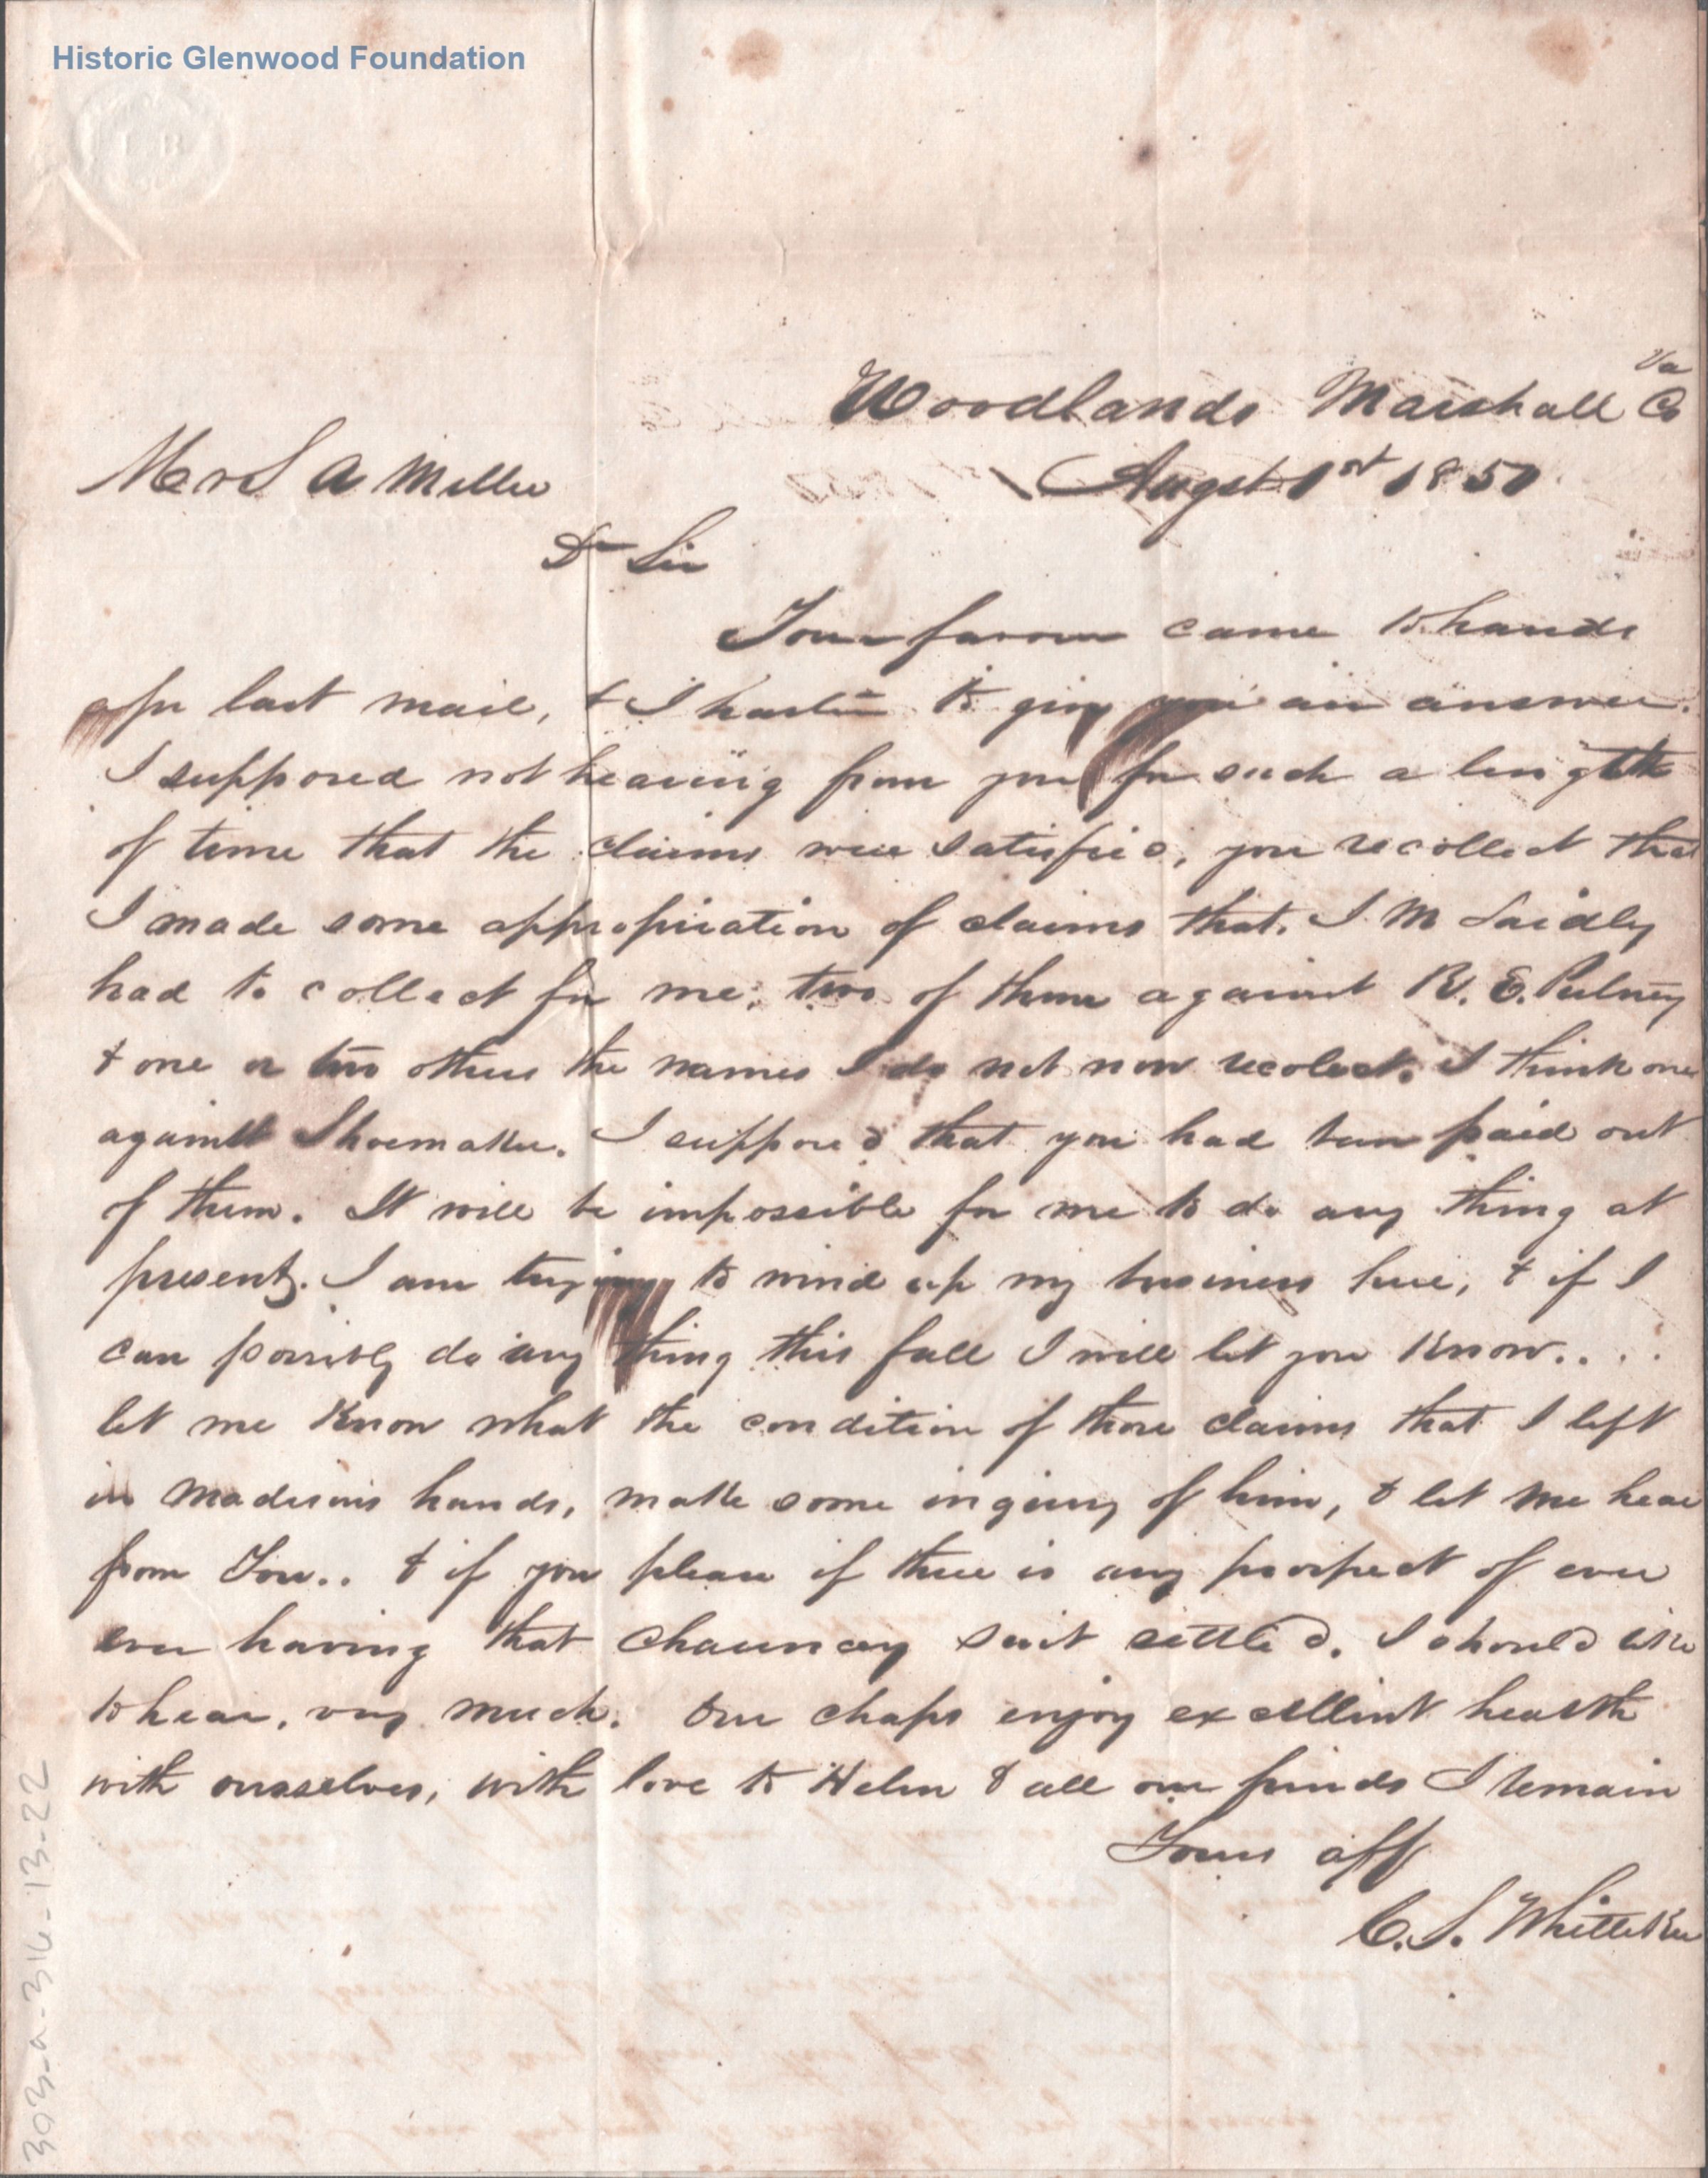 Historic Glenwood Foundation
Woodlands Marshall Co Va
Augst 1st 1850
Mr S A Miller
Dr Sir
Your favour came to hand
pr last mail, & I hasten to give you an answer.
I supposed not hearing from you for such a length
of time that the claims were satisfied, you recollect that
I made some appropriation of claims that J. M Laidly
had to collect for me, two of them against R. E. Putney
& one or two others the names I do not now recolect. I think one
against Shoemaker. I supposed that you had been paid out
of them. It will be impossible for me to do any thing at
present. I am trying to wind up my business here, & if I
can possibly do any thing this fall I will let you know....
let me know what the condition of those claims that I left
in Madisons hands, make some inquiry of him, & let me hear
from You.. & if you please if there is any prospect of ever
ever having that Chauncey suit settled. I should like
to hear, very much. Our chaps enjoy excellint health
with ourselves, with love to Helen & all our friends I remain
Yours aff
C. S. Whitteker
303-a-316-13-22